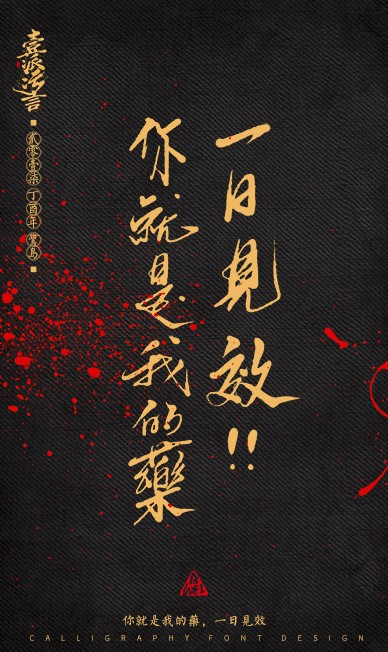 一日見效!!
你就是我的藥
貳零壹柒丁酉年
你就是我的藥，一日見效
CALLIGRAPHY FONT DESIGN